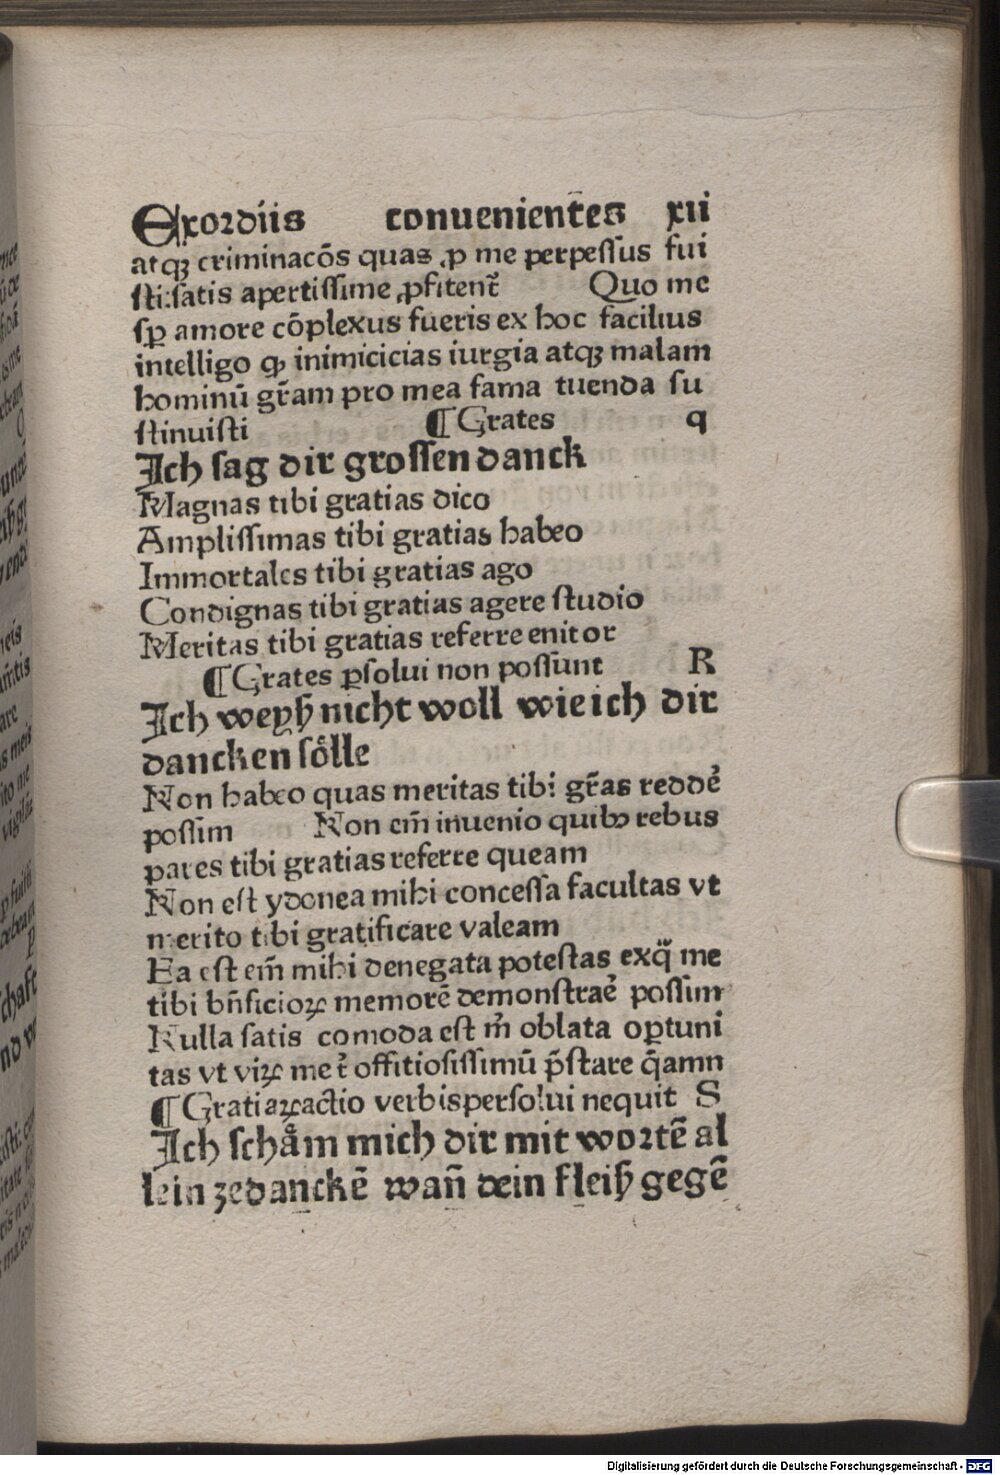 Exordiis conuenientes xii
atqꝫ criminacōs quas ꝓ me perpeſſus fui
ſti: ſatis apertiſſime ꝓfitent᷑ Quo me
ſꝑ amore cōplexus fueris ex hoc facilius
intelligo ꝙ inimicicias iurgia atqꝫ malam
hominū gr̄am pro mea fama tuenda ſu
ſtinuiſti ¶ Grates q
Ich ſag dir groſſen danck
Magnas tibi gratias dico
Ampliſſimas tibi gratias habeo
Immortales tibi gratias ago
Condignas tibi gratias agere ſtudio
Meritas tibi gratias referre enitor
¶ Grates ꝑſolui non poſſunt R
Ich weyß nicht woll wie ich dir
dancken ſoͤlle
Non habeo quas meritas tibi gr̄as redde᷑
poſſim Non em̄ inuenio quibꝰ rebus
pares tibi gratias referre queam
Non eſt ydonea mihi conceſſa facultas vt
merito tibi gratificare valeam
Ea eſt em̄ mihi denegata poteſtas ex qͣ me
tibi bn̄ficioꝝ memorē demonſtrae᷑ poſſim
Nulla ſatis comoda eſt m̄ oblata oꝑtuni
tas vt viꝝ me t᷑ offitioſiſſimū p̄ſtare q̄amn
¶ Gratiaꝝ actio verbis perſolui nequit S
Ich ſchaͤm mich dir mit wortē al
lein zedanckē wan̄ dein fleiß gegē
Digitalisierung gefördert durch die Deutsche Forschungsgemeinschaft - DFG